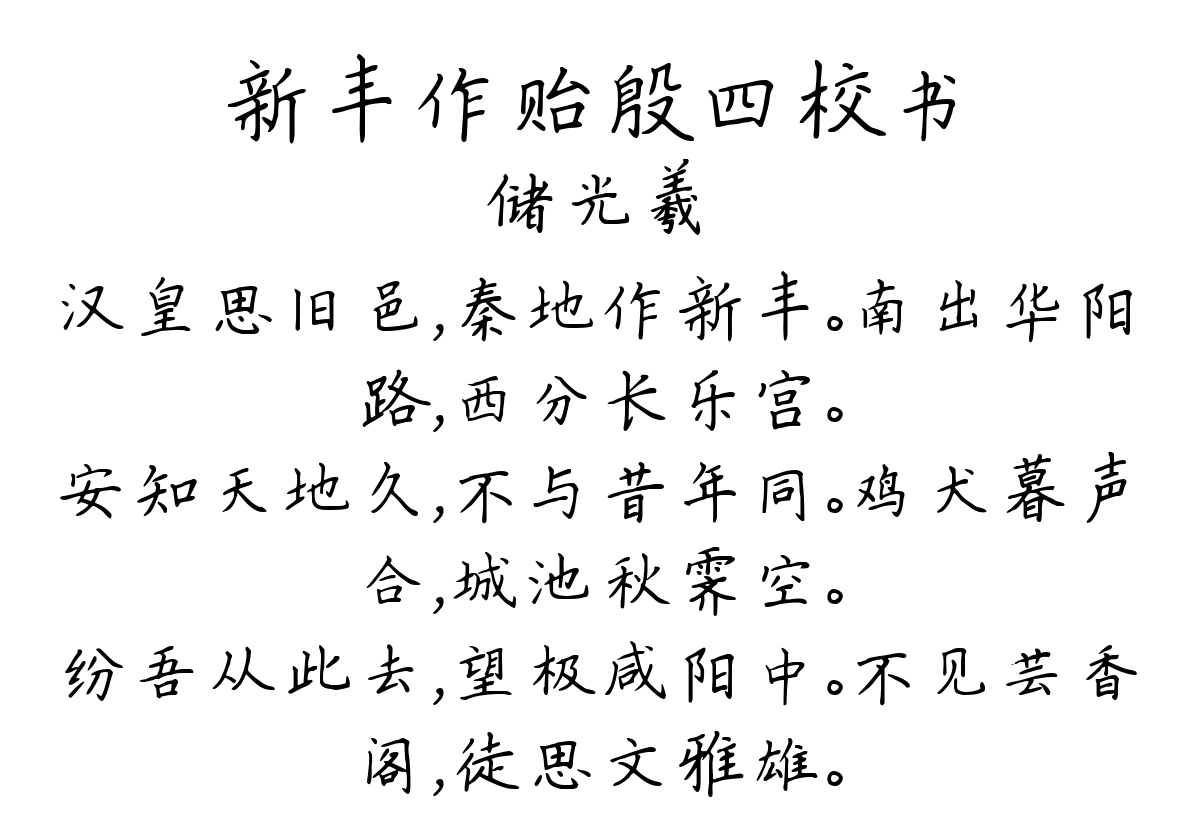 新丰作贻殷四校书
储光羲
汉皇思旧邑,秦地作新丰。南出华阳
路,西分长乐宫。
安知天地久,不与昔年同。鸡犬暮声
合,城池秋霁空。
纷吾从此去,望极咸阳中。不见芸香
阁,徒思文雅雄。